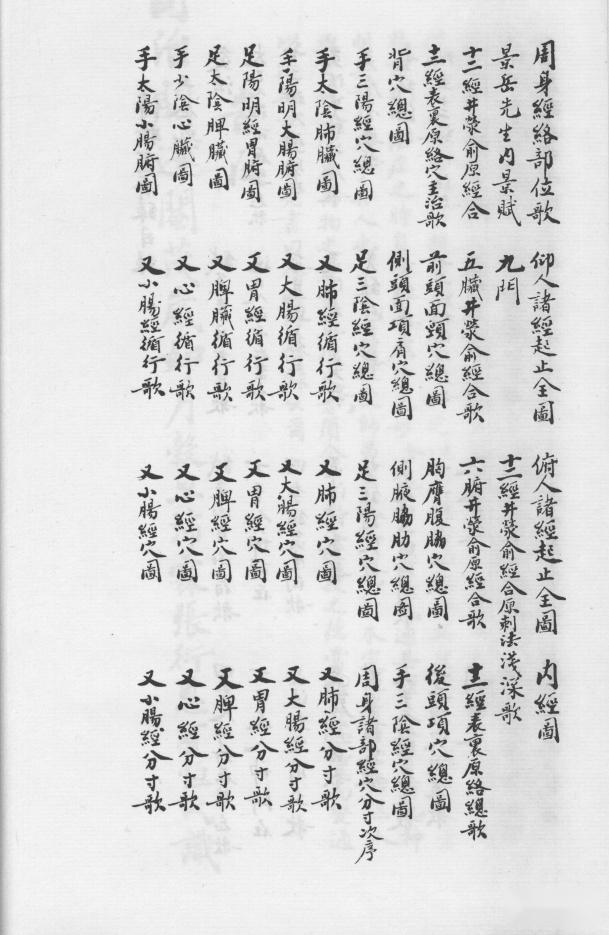 周身經絡部位歌 仰人諸經起止全圖 俯人諸經起止全圖 內經圖
景岳先生內景賦 九門 十二經井滎俞經合原刺法淺深歌
十二經井滎俞原經合 五臟井滎俞經合歌 六腑井滎俞原經合歌 十二經表裏原絡總歌
十二經表裏原絡穴主治歌 前頭面頸穴總圖 胸膺腹脇穴總圖 後頭項穴總圖
背穴總圖 側頭面項肩穴總圖 側腋脇肋穴總圖 手三陰經穴總圖
手三陽經穴總圖 足三陰經穴總圖 足三陽經穴總圖 周身諸部經穴分寸次序
手太陰肺臟圖 又肺經循行歌 又肺經穴圖 又肺經分寸歌
手陽明大腸腑圖 又大腸循行歌 又大腸經穴圖 又大腸經分寸歌
足陽明經胃腑圖 又胃經循行歌 又胃經穴圖 又胃經分寸歌
足太陰脾臟圖 又脾臟循行歌 又脾經穴圖 又脾經分寸歌
手少陰心臟圖 又心經循行歌 又心經穴圖 又心經分寸歌
手太陽小腸腑圖 又小腸經循行歌 又小腸經穴圖 又小腸經分寸歌